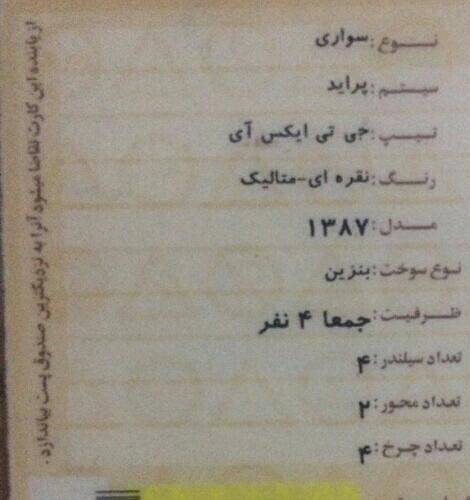 نوع: سواری
سیستم: پراید
تیپ: جی تی ایکس آی
رنگ: نقره ای-متالیک
مدل: ۱۳۸۷
نوع سوخت: بنزین
ظرفیت: جمعا ۴ نفر
تعداد سیلندر: ۴
تعداد محور: ۲
تعداد چرخ: ۴
از یابنده این کارت تقاضا میشود آنرا به نزدیکترین صندوق پست بیاندازد.